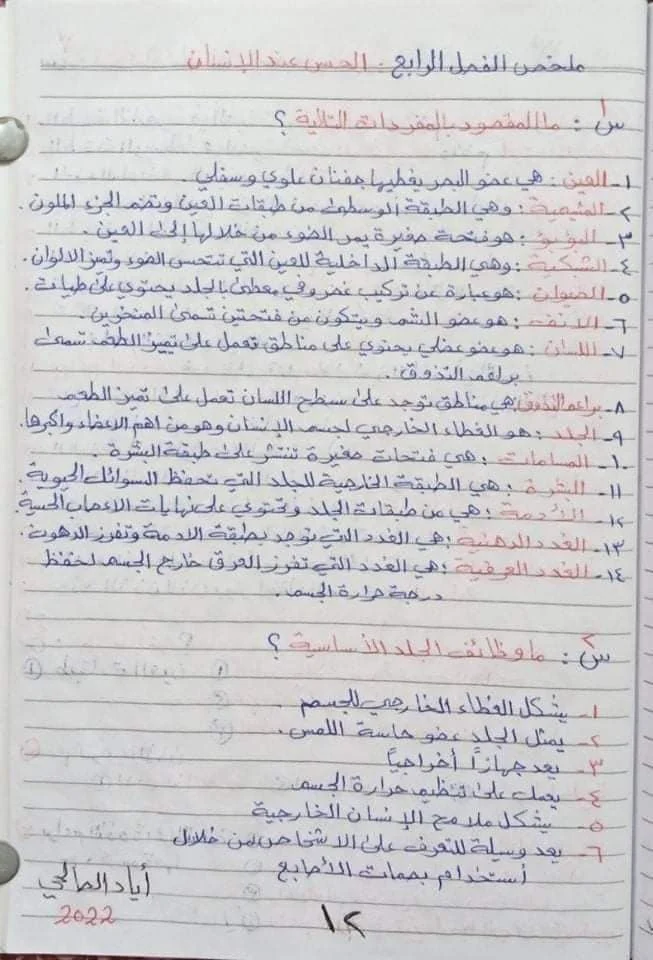 ملخص الفصل الرابع . الحس عند الإنسان
س١ : ما المقصود بالمفردات التالية ؟
١- العين : هي عضو البصر يغطيها جفنان علوي وسفلي .
٢- المشيمية : وهي الطبقة الوسطى من طبقات العين وتضم الجزء الملون .
٣- البؤبؤ : هو فتحة صغيرة يمر الضوء من خلالها إلى العين .
٤- الشبكية : وهي الطبقة الداخلية للعين التي تتحسس الضوء وتميز الالوان .
٥- الصيوان : هو عبارة عن تركيب غضروفي مغطى بالجلد يحتوي على طيات .
٦- الانف : هو عضو الشم ويتكون من فتحتين تسمى المنخرين .
٧- اللسان : هو عضو عضلي يحتوي على مناطق تعمل على تمييز الطعم تسمى
براعم التذوق .
٨- براعم التذوق : هي مناطق توجد على سطح اللسان تعمل على تميز الطعم
٩- الجلد : هو الغطاء الخارجي لجسم الإنسان وهو من اهم الاعضاء واكبرها .
١٠- المسامات : هي فتحات صغيرة تنتشر على طبقة البشرة .
١١- البشرة : هي الطبقة الخارجية للجلد التي تحفظ السوائل الحيوية .
١٢- الأدمة : هي من طبقات الجلد وتحتوي على نهايات الاعصاب الحسية .
١٣- الغدد الدهنية : هي الغدد التي توجد بطبقة الادمة وتفرز الدهون .
١٤- الغدد العرقية : هي الغدد التي تفرز العرق خارج الجسم لحفظ
درجة حرارة الجسم .
س٢ : ما وظائف الجلد الأساسية ؟
١- يشكل الغطاء الخارجي للجسم .
٢- يمثل الجلد عضو حاسة اللمس .
٣- يعد جهازاً أخراجياً
٤- يعمل على تنظيم حرارة الجسم
٥- يشكل ملامح الإنسان الخارجية
٦- يعد وسيلة للتعرف على الاشخاص من خلال
أستخدام بصمات الأصابع
أياد الصالحي
2022
١٢